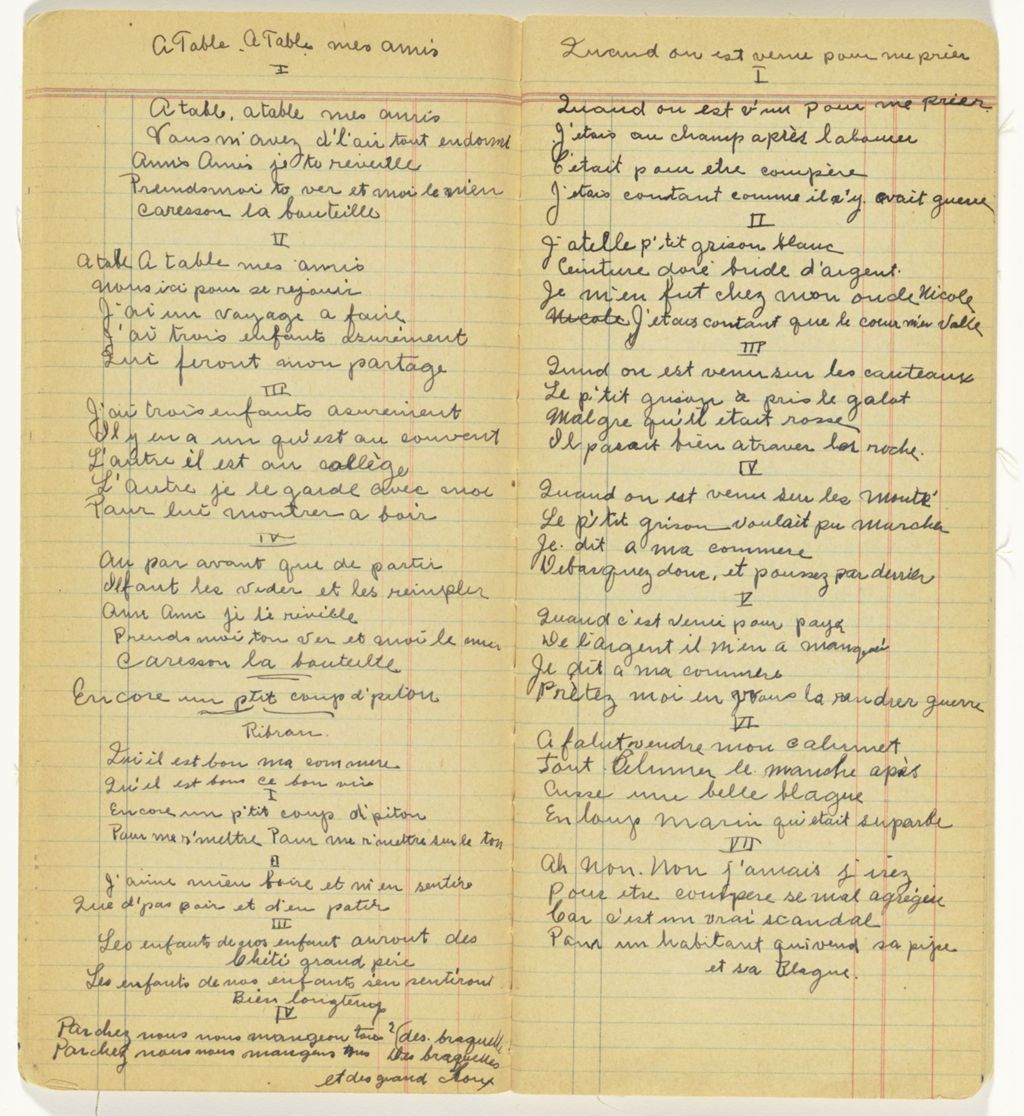 A Table. A Table mes amis
I
A table, a table mes amis
Vous m'avez d'l'air tout endormi
Amis Amis je to reveille
Prendsmoi to ver et moi le mien
Caresson la bouteille
II
A table A table mes amis
Nous ici pour se rejouir
J'ai un voyage a faire
J'ai trois enfants asurement
Qui feront mon partage
III
J'ai trois enfants asurement
Il y en a un qu'est au couvent
L'autre il est au collège
L'Autre je le garde avec moi
Pour lui montrer a boir
IV
Au par avant que de partir
Ilfaut les vider et les reimplir
Ami Ami je te
Prends moi ton ver et moi le mien
Caresson la bouteille
Encore un ptit coup d'piton
Ribran.
Qui il est bon ma commere
Qu'il est bon ce bon vin
I
Encore un p'tit coup d'piton
Pour me r'mettre Pour me r'mettre sur le ton
II
J'aime mieu boire et m'en sentire
Que d'pas boir et d'en patir
III
Les enfants de nos enfant auront des
Chéti grand père
Les enfants de nos enfants s'en sentiront
Bien longtemp
IV
Par chez nous nous mangeon tous ? (des braguette
Par chez nous nous mangeons tous Des braguettes
et des grand choux
Quand on est venue pour me prier
I
Quand on est v'nu pour me prier
J'étais au champ après labourer
C'était pour etre compère
J'etais contant comme il n'y avait guerre
II
J'atelle p'tit grison blanc
Ceinture doré bride d'argent.
Je m'en fut chez mon oncle Nicole
Nicole J'etais contant que le cœur m'en volle
III
Qund on est venu sur les cauteaux
Le p'tit grison a pris le galot
Malgre qu'il etait rosse
Il pasait bien a traver les roche.
IV
Quand on est venu sur les monté
Le p'tit grison voulait pu marcher
Je dit a ma commere
Debarquez donc, et poussez par derrier
V
Quand c'est venu pour payé
De l'argent il m'en a manqué
Je dit a ma commere
Prètez moi en j'vous la rendrer guerre
VI
A falut vendre mon calumet
Tout le manche après
Cusse une belle blague
En loup marin qu'etait superbe
VII
Ah Non. Non j'amais j irez
Pour etre compere se mal agrégéu
Car c'est un vrai scandal
Pour un habitant qui vend sa pipe
et sa Blague.